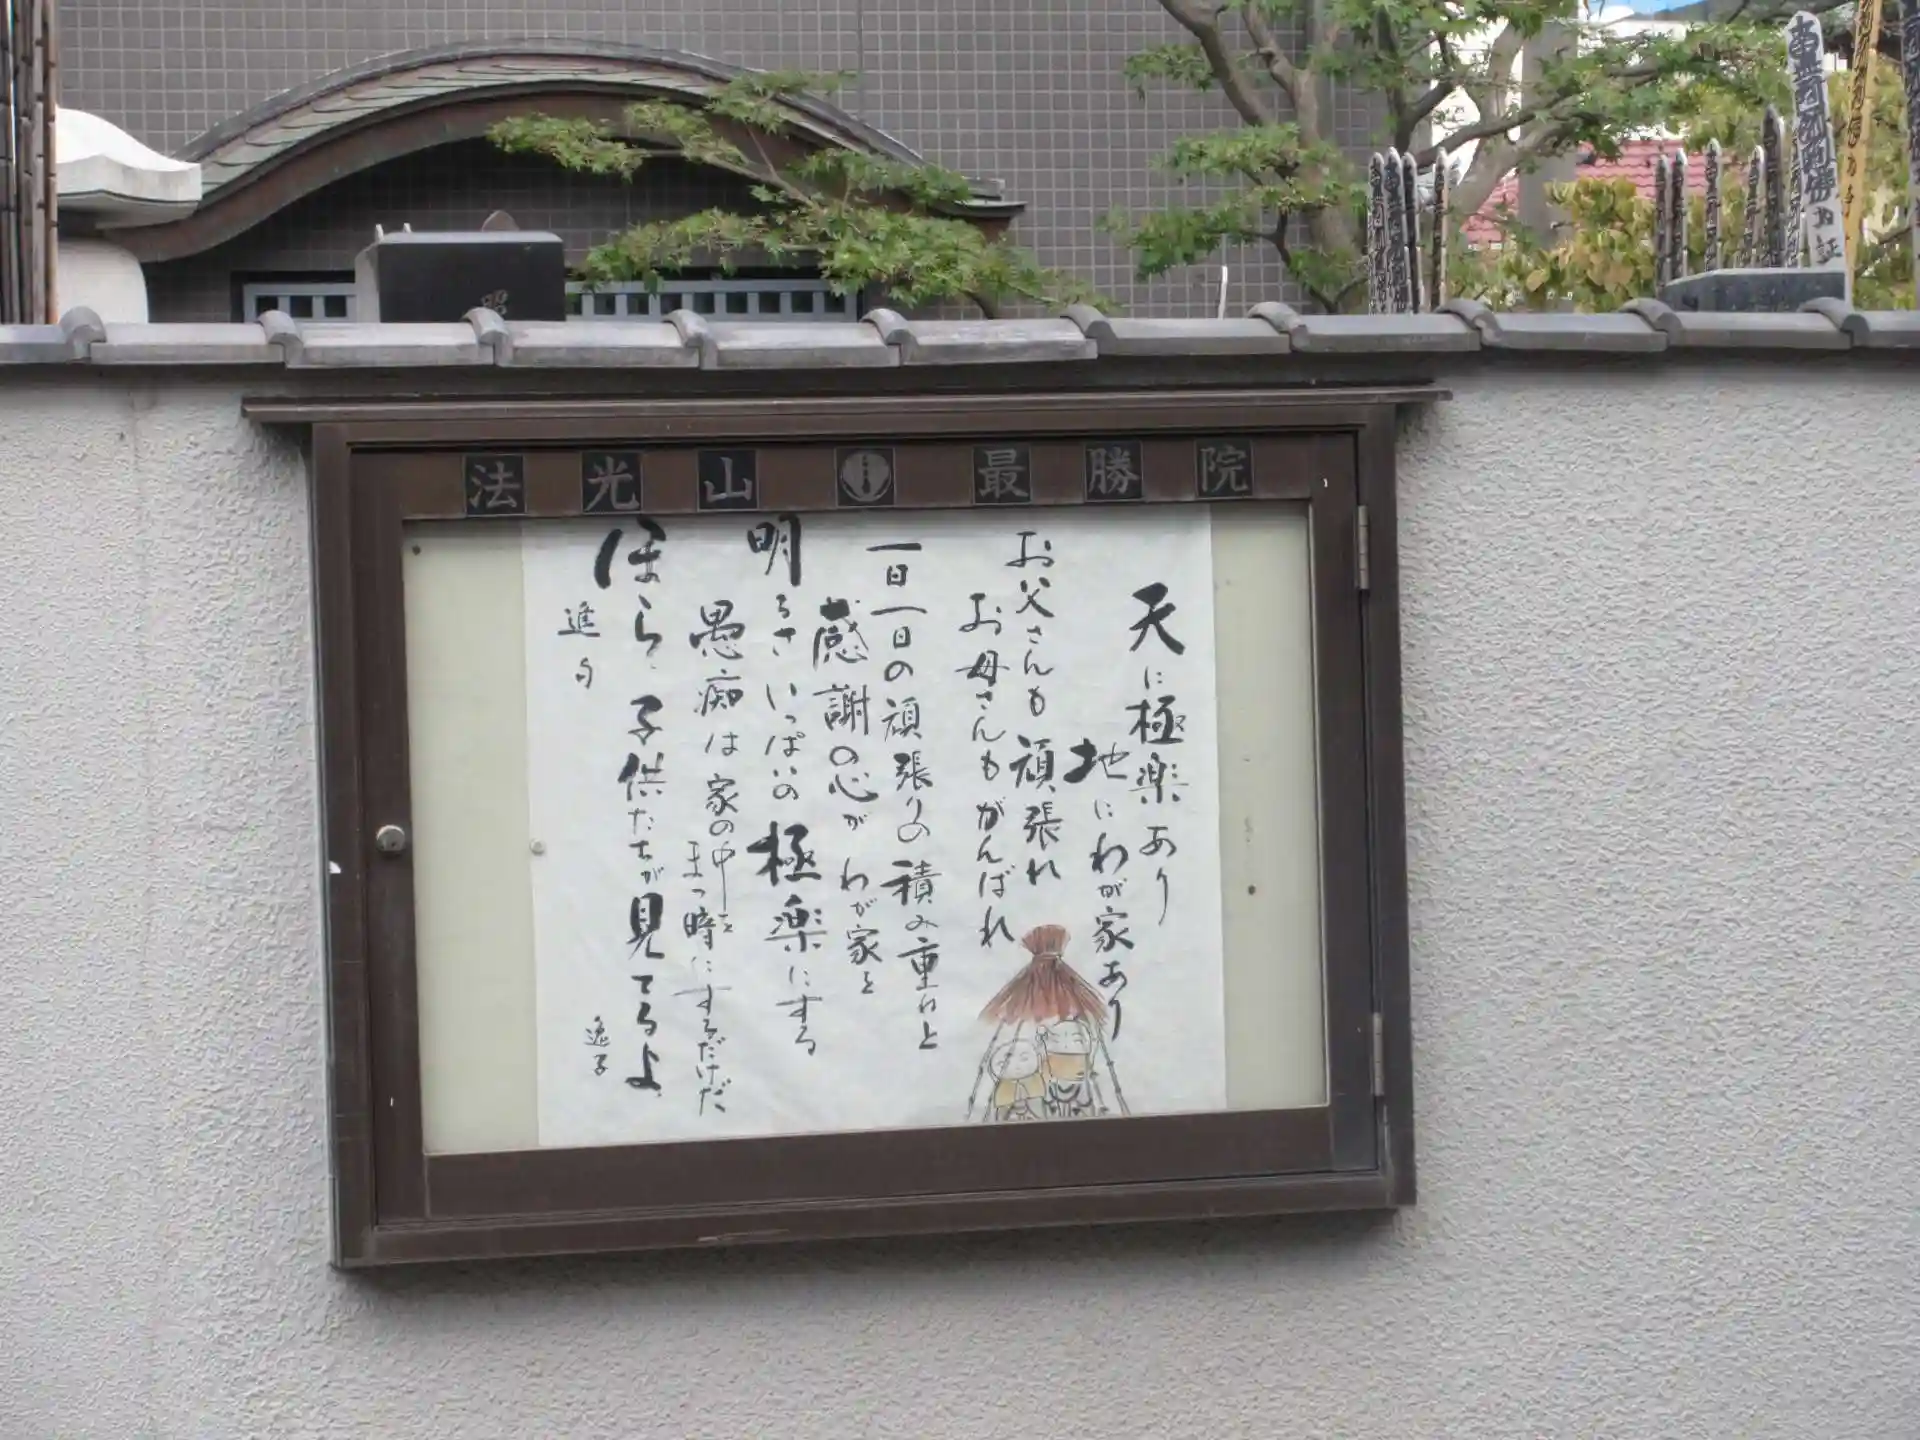 法光山 最勝院
天に極楽あり
地にわが家あり
お父さんも頑張れ
お母さんもがんばれ
一日一日の頑張りの積み重ねと
感謝の心が わが家を
明るさいっぱいの極楽にする
愚痴は家の中を
まっ暗にするだけだ
ほら、子供たちが見てるよ
逸子